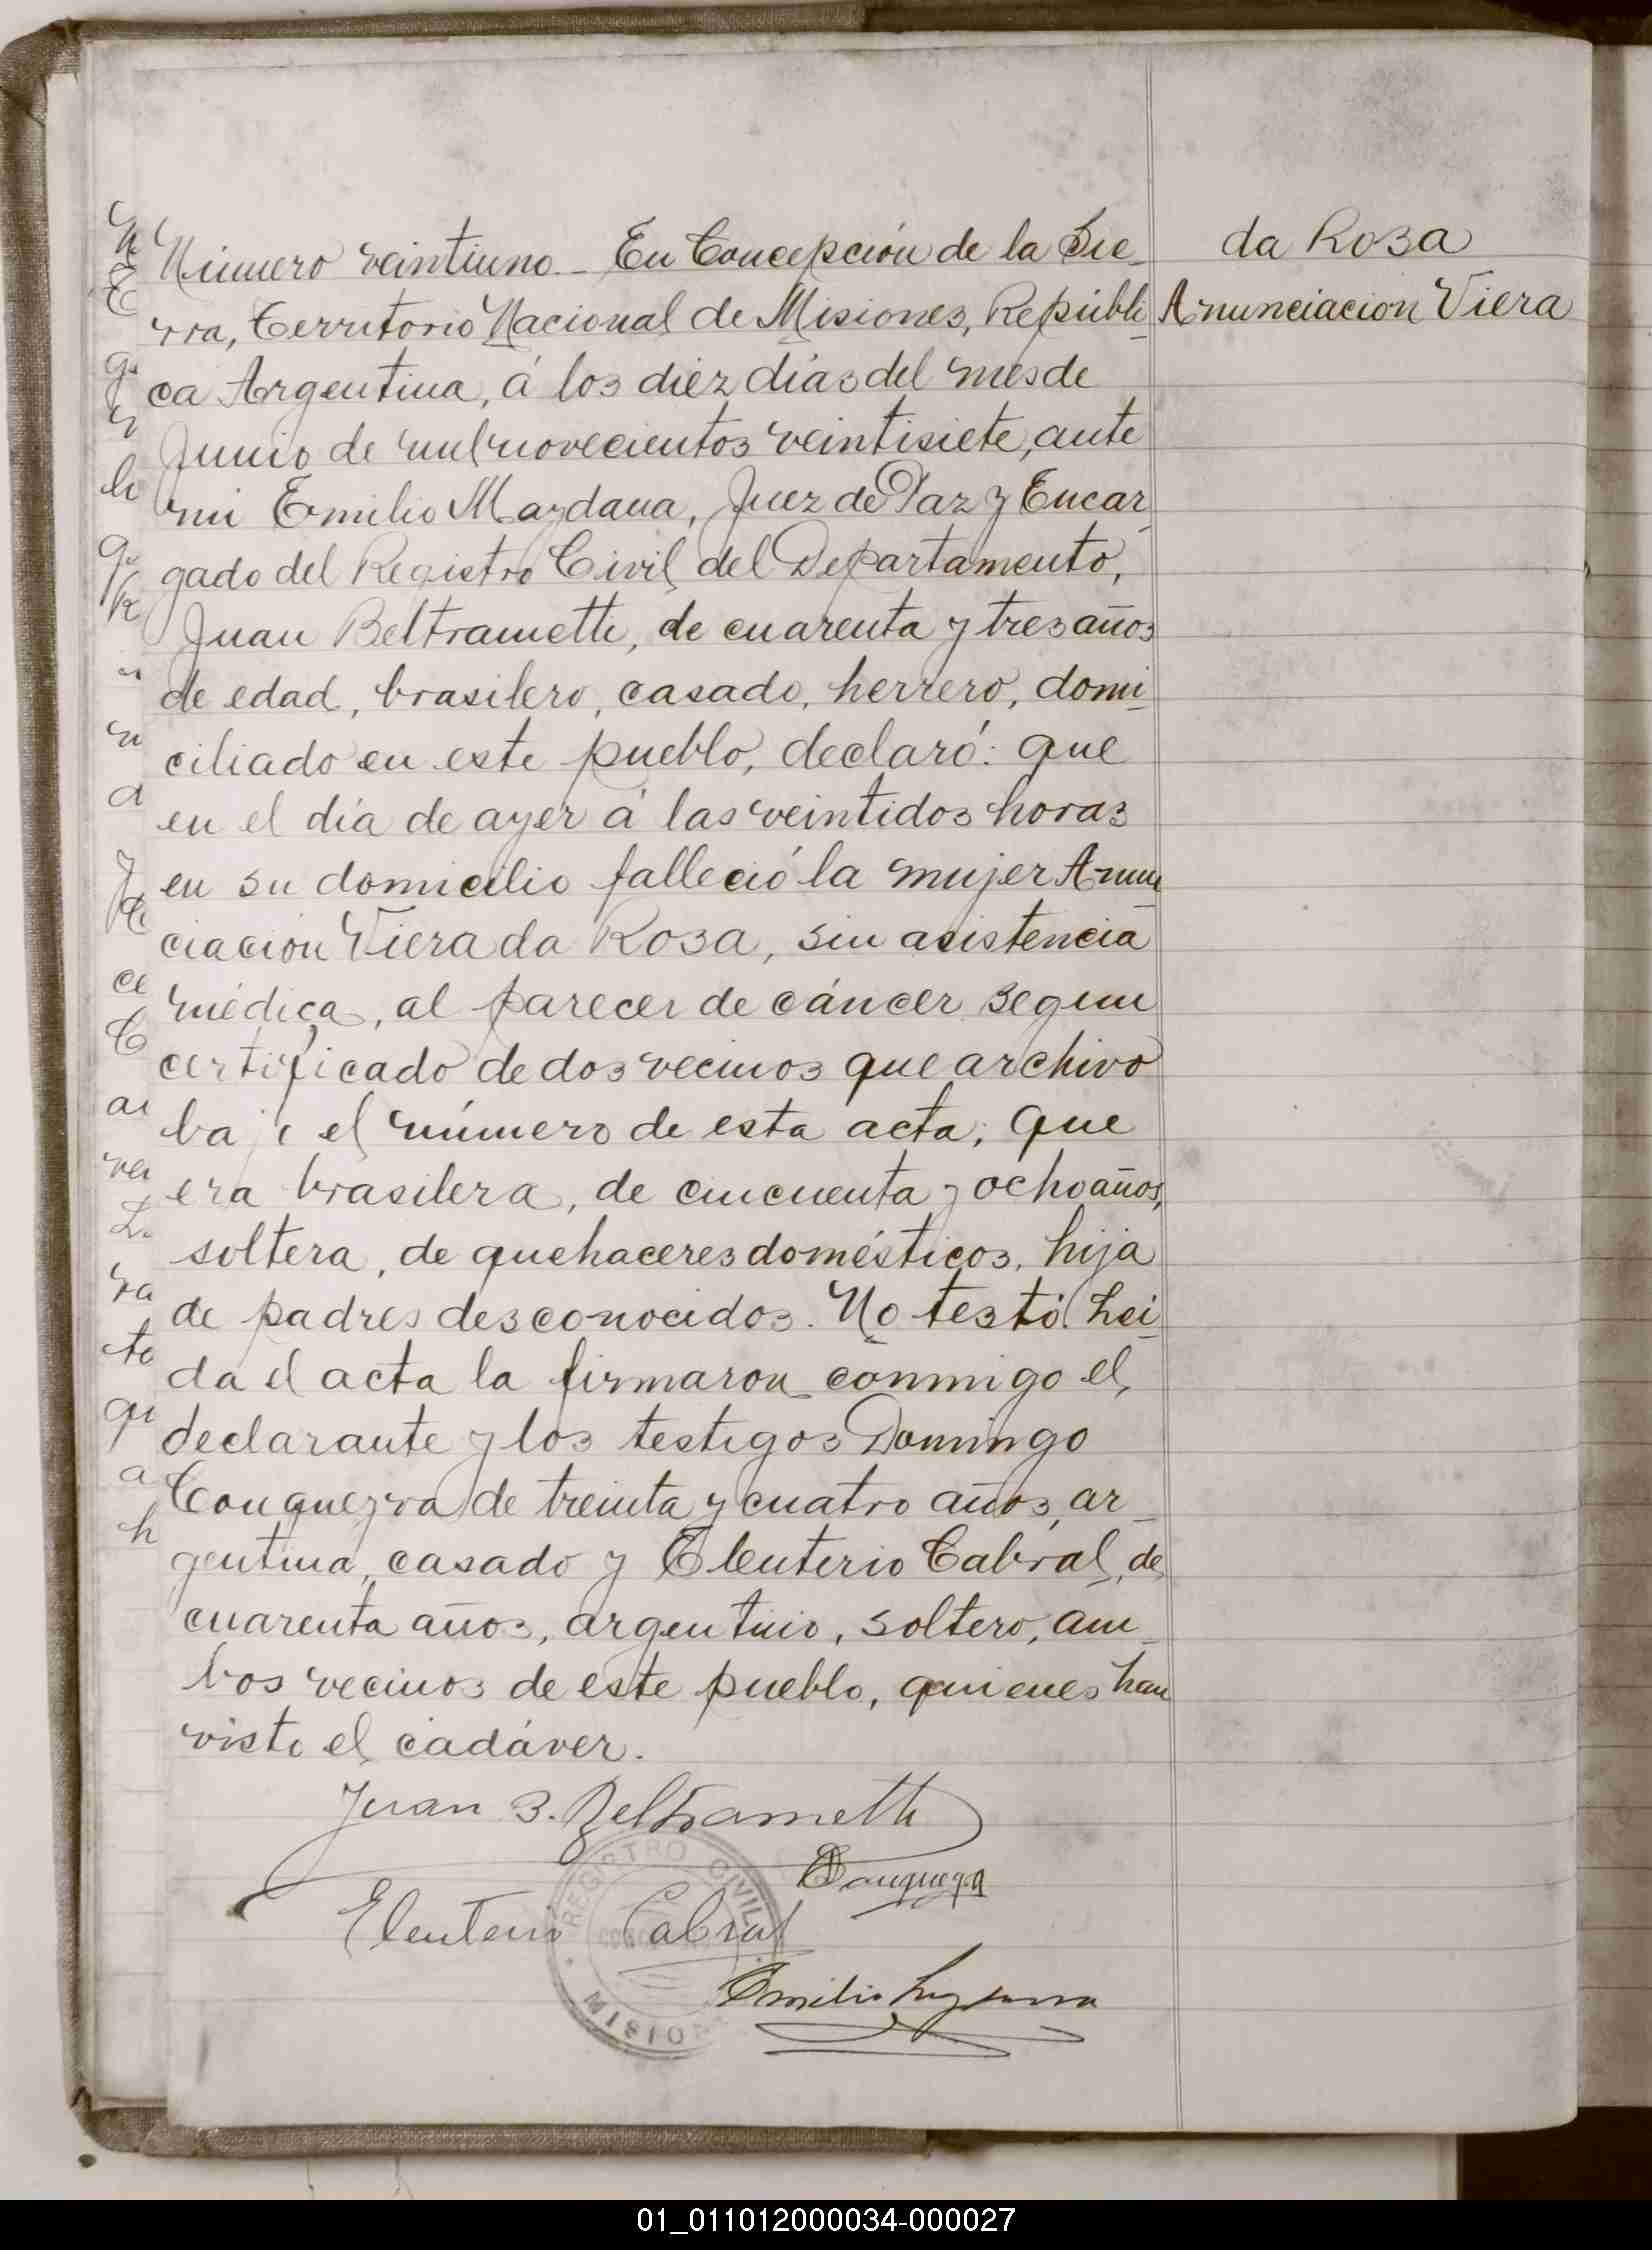 Número veintiuno._ En Concepción de la Sie_
rra, Territorio Nacional de Misiones, Repúbli_
ca Argentina, á los diez días del mes de
Junio de mil novecientos veintisiete, ante
mi Emilio Maydana, Juez de Paz y Encar_
gado del Registro Civil del Departamento,
Juan Beltrametti, de cuarenta y tres años
de edad, brasilero, casado, herrero, domi_
ciliado en este pueblo, declaró: que
en el día de ayer á las veintidos horas
en su domicilio falleció la mujer Anun_
ciación Viera da Rosa, sin asistencia
médica, al parecer de cáncer segun
certificado de dos vecinos que archivo
bajo el número de esta acta; que
era brasilera, de cincuenta y ocho años,
soltera, de quehaceres domésticos, hija
de padres desconocidos. No testó. Lei_
da el acta la firmaron conmigo el
declarante y los testigos Domingo
de treinta y cuatro años, ar_
gentina, casado y Eleuterio Cabral, de
cuarenta años, argentino, soltero, am_
bos vecinos de este pueblo, quienes han
visto el cadáver.
da Rosa
Anunciacion Viera
Juan B. Beltrametti
Eleuterio Cabral
REGISTRO CIVIL
Emilio
01_011012000034-000027